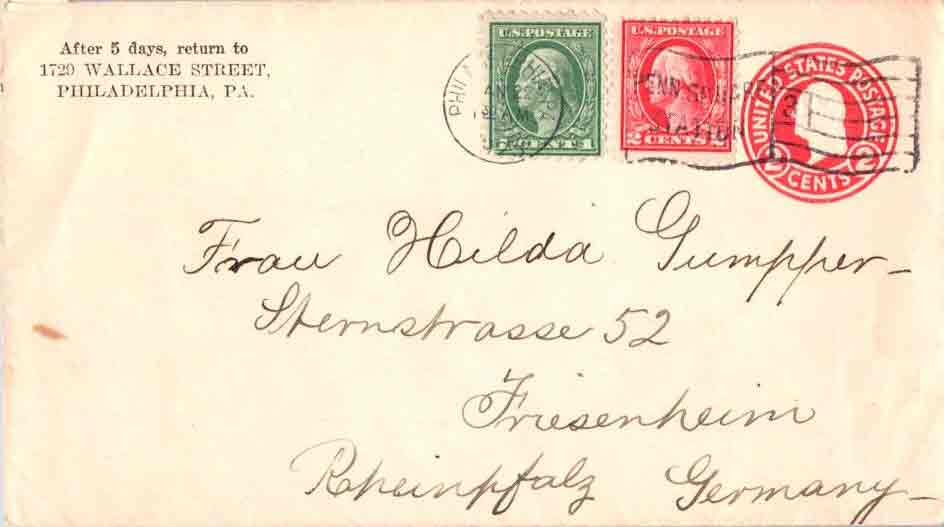 After 5 days, return to
1729 WALLACE STREET,
PHILADELPHIA, PA.
U.S. POSTAGE
1
U.S. POSTAGE
2 CENTS 2
STATION
UNITED STATES POSTAGE
2 CENTS 2
Frau Hilda Gumpper-
Sternstrasse 52
Friesenheim
Rheinpfalz Germany-